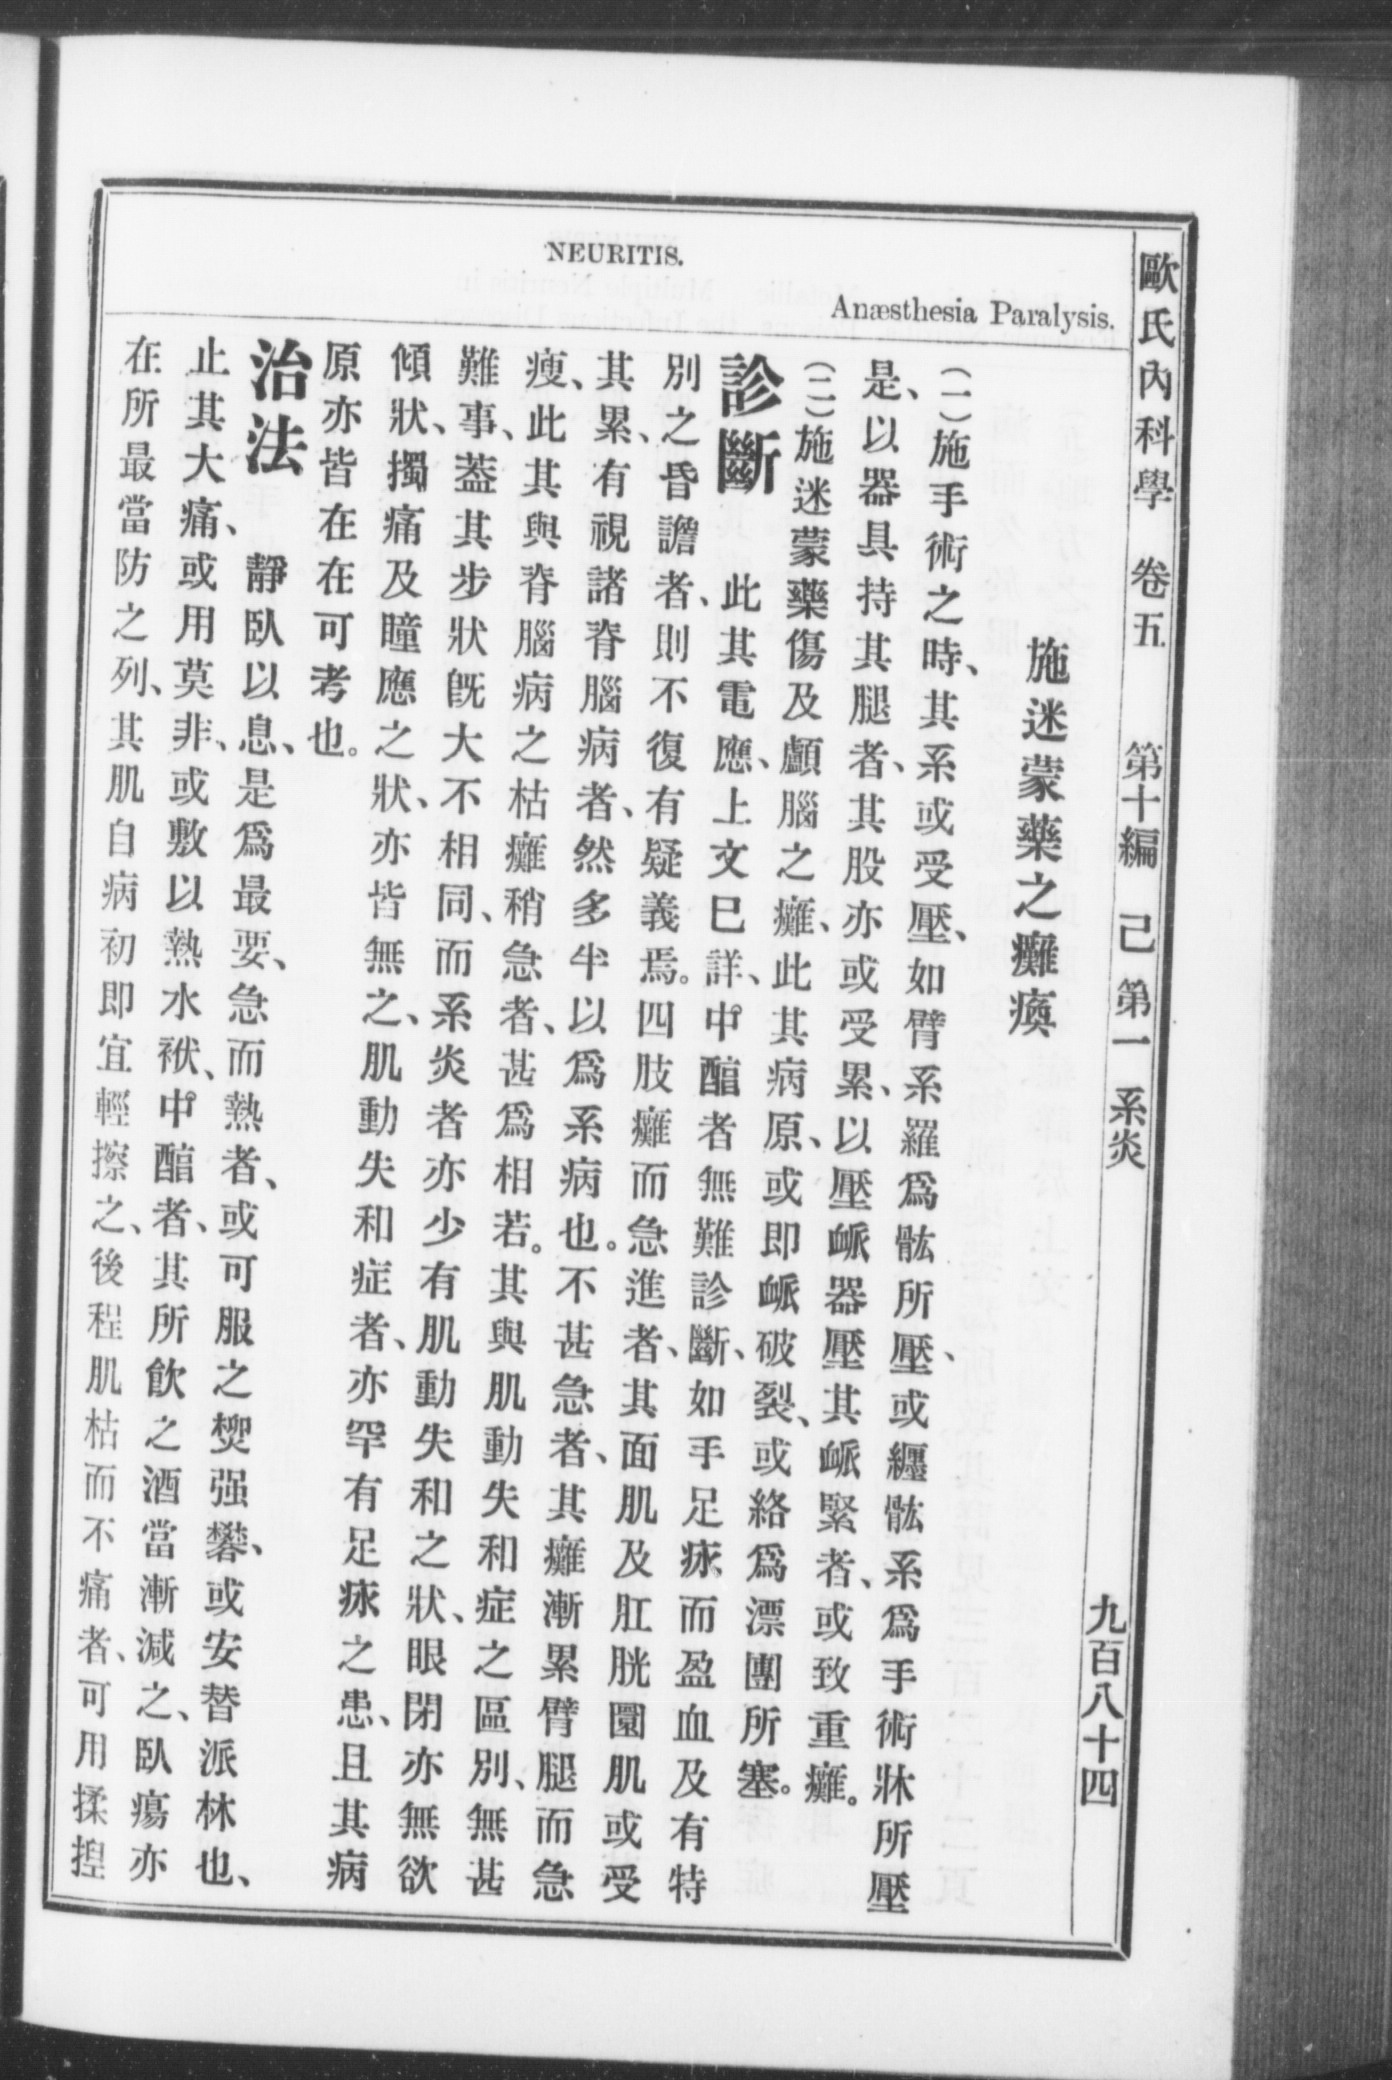 歐氏內科學　卷五　第十編　己　第一　系炎　九百八十四
NEURITIS.
Anæsthesia Paralysis.
施迷蒙藥之癱瘓
(一)施手術之時、其系或受壓、如臂系羅爲骩所壓、或纒骩系爲手術牀所壓
是、以器具持其腿者、其股亦或受累、以壓衇器壓其衇緊者、或致重癱。
(二)施迷蒙藥傷及顱腦之癱、此其病原、或即衇破裂、或絡爲漂團所塞。
診斷　此其電應、上文已詳、中醕者無難診斷、如手足疢而盈血及有特
別之昏譫者、則不復有疑義焉。四肢癱而急進者、其面肌及肛胱圜肌或受
其累、有視諸脊腦病者、然多半以爲系病也。不甚急者、其癱漸累臂腿而急
瘦、此其與脊腦病之枯癱稍急者、甚爲相若。其與肌動失和症之區別、無甚
難事、蓋其步狀旣大不相同、而系炎者亦少有肌動失和之狀、眼閉亦無欲
傾狀、擉痛及瞳應之狀、亦皆無之、肌動失和症者、亦罕有足疢之患、且其病
原亦皆在在可考也。
治法　靜臥以息、是爲最要、急而熱者、或可服之煛强礬、或安替派林也、
止其大痛、或用莫非、或敷以熱水袱、中醕者、其所飲之酒當漸減之、臥瘍亦
在所最當防之列、其肌自病初即宜輕擦之、後程肌枯而不痛者、可用揉揑